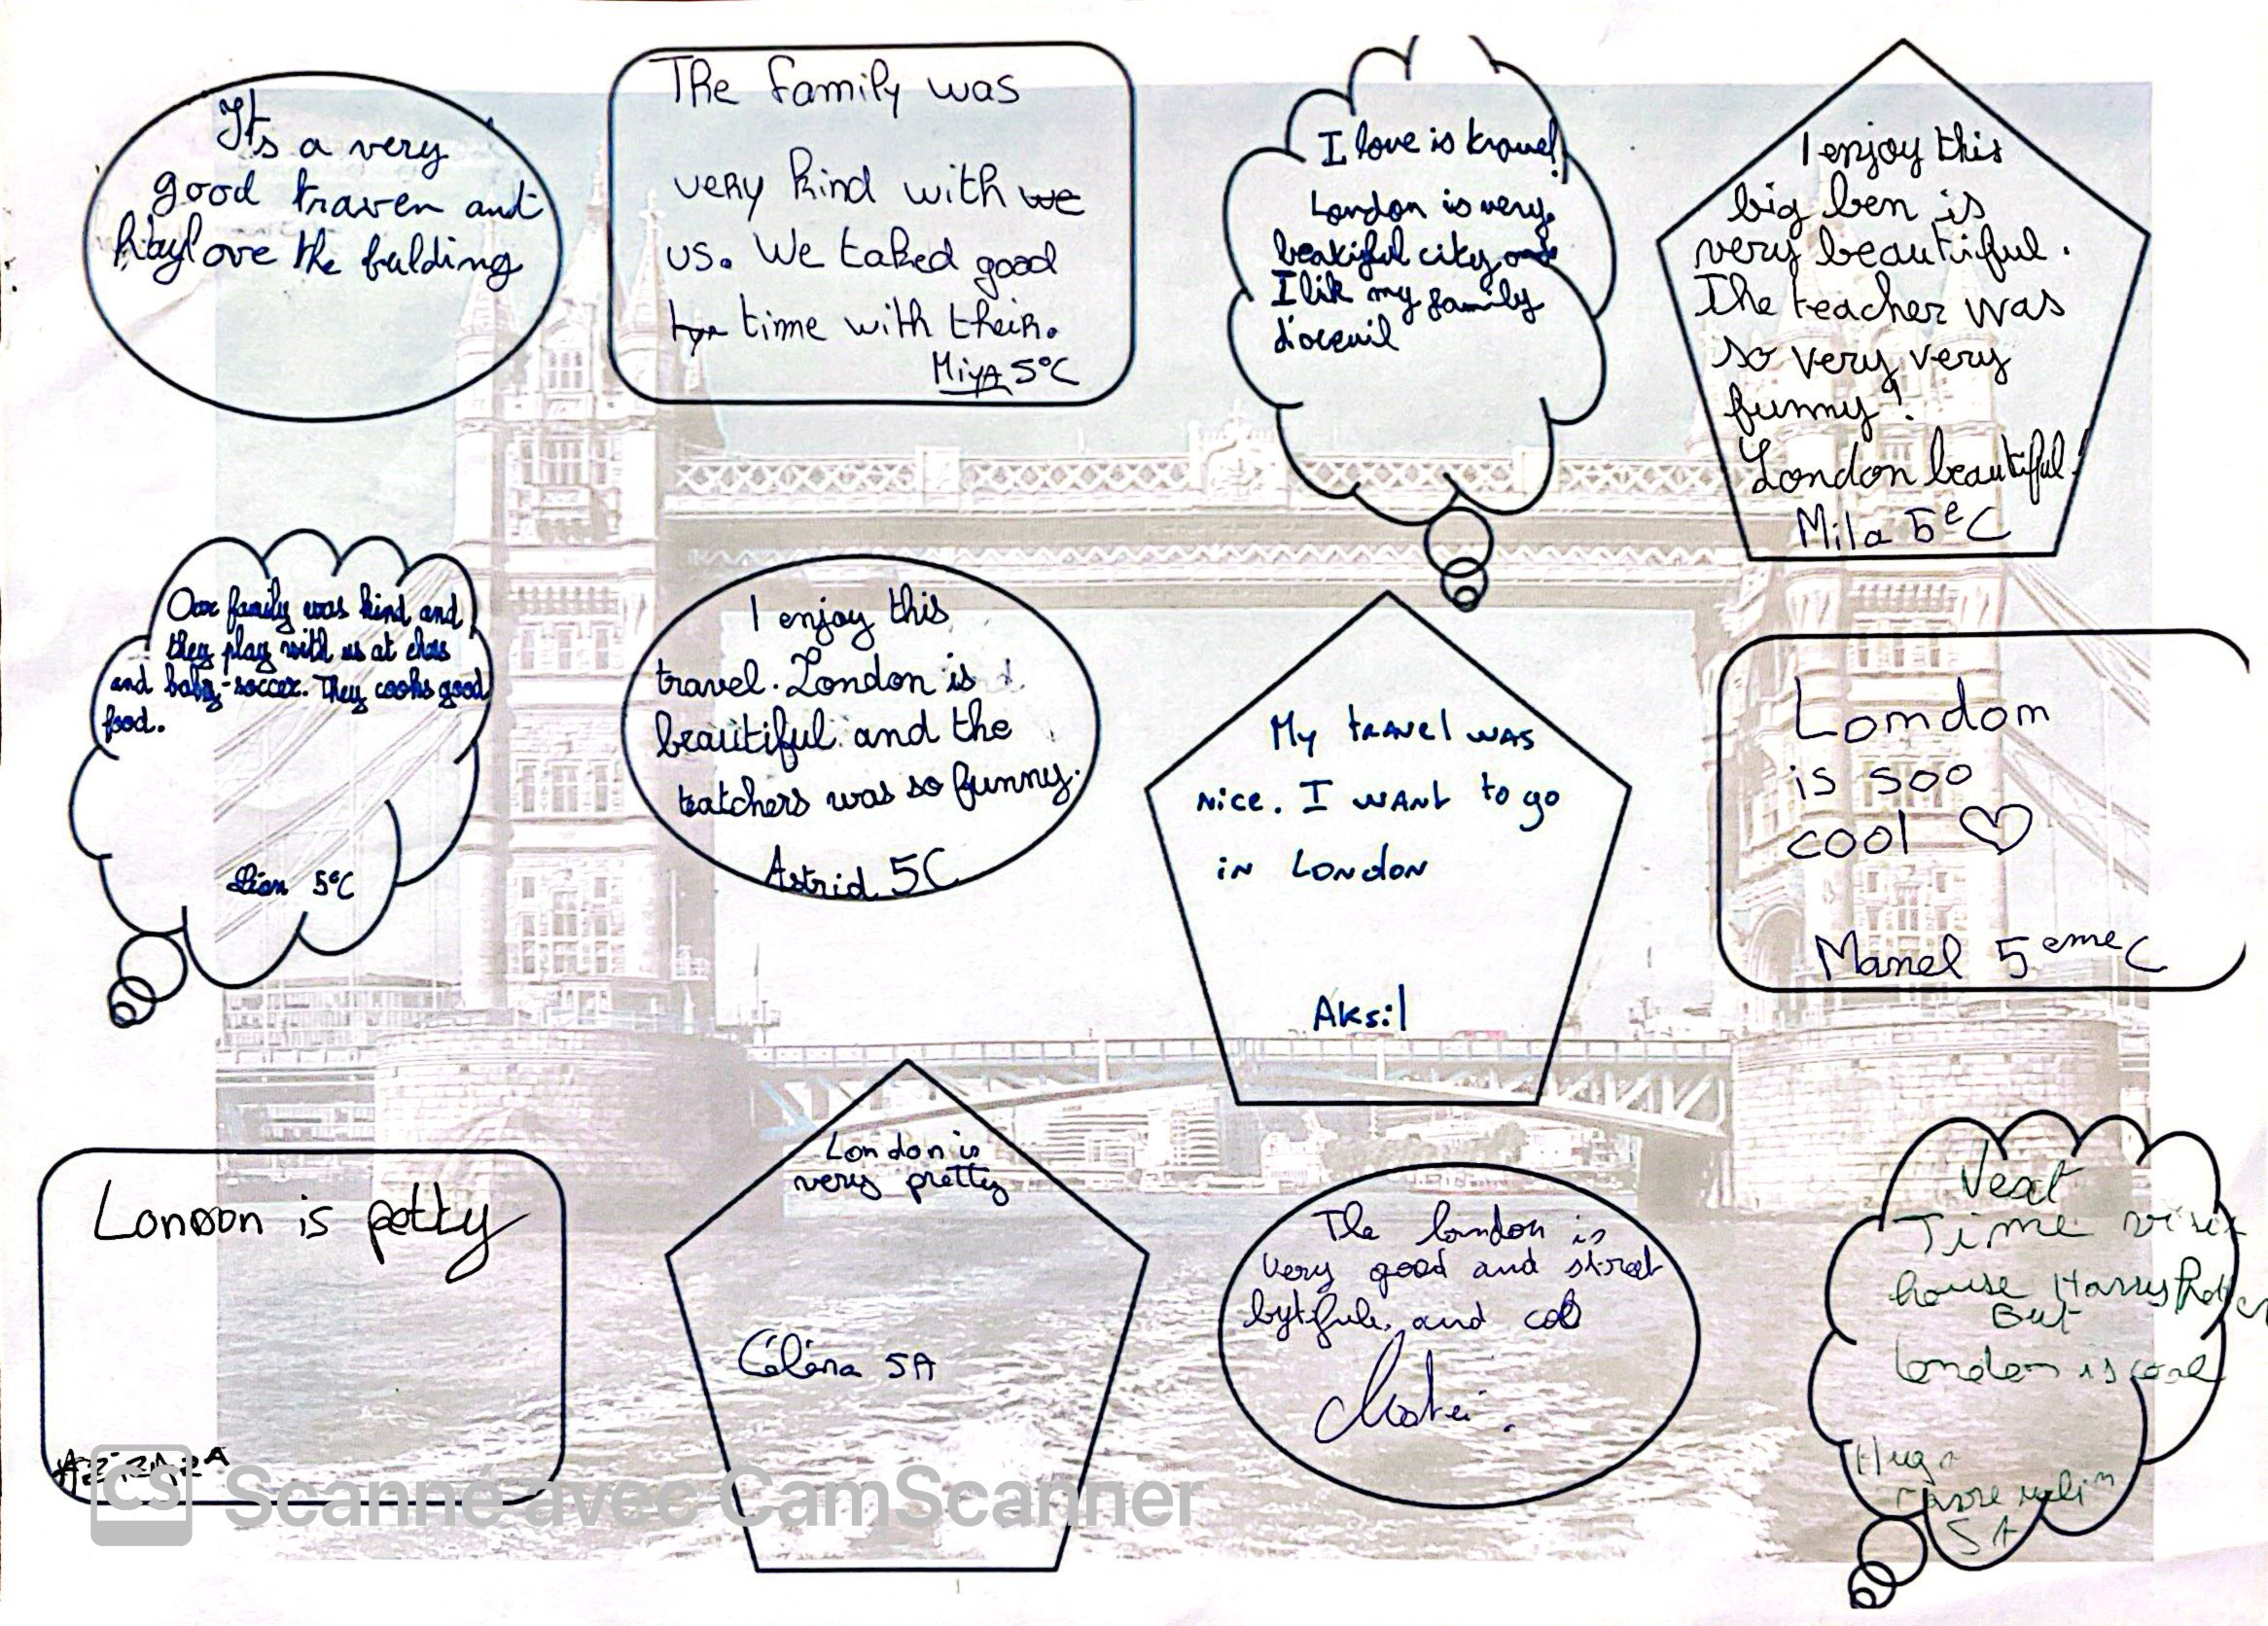 It's a very
good traven and
they love the bulding
The family was
very kind with we
us. We taked good
time with their.
Miya 5°C
I love is travel!
London is very
beatiful city and
I lik my family
d'aceuil
I enjoy this
big ben is
very beautiful.
The teacher was
so very very
funny!
London beautiful!
Mila 5e C
Our family was kind and
they play with us at chss
and baby-soccer. They cooks good
food.
5°C
I enjoy this
travel. London is
beautiful and the
teatchers was so funny.
Astrid 5C
My travel was
nice. I want to go
in London
Aksil
London
is soo
cool ♡
Manel 5eme C
London is petty
London is
very pretty
Céléna 5A
The london is
very good and street
bytifule, and cool
Matei.
Next
Time visit
house Harry Potter
But
London is cool
Hugo
5A
CS Scanné avec CamScanner